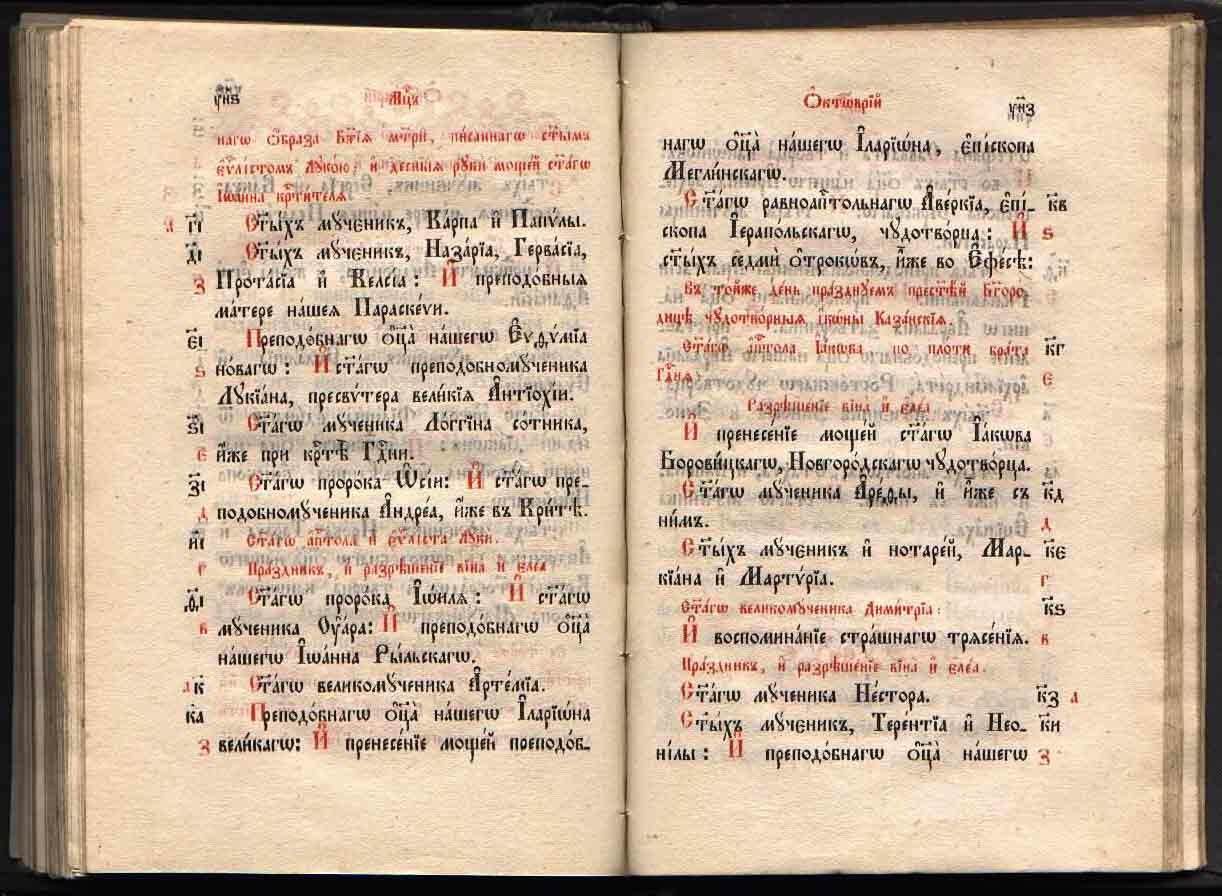 у҃нѕ Мцⷭ҇ъ
нагѡ ѡ҆́браза бж҃їѧ мт҃ри, пи́саннагѡ ст҃ы́ма
є҆ѵⷢ҇лі́стомъ лꙋко́ю, и҆ десны́ѧ рꙋкѝ моще́й ст҃а́гѡ
і҆ѡа́нна крⷭ҇ти́телѧ
а г҃і Ст҃ы́хъ мꙋ́ченикъ, Ка́рпа и҆ Папѵ́лы.
д҃і Ст҃ы́хъ мꙋ́ченикъ, Наза́рїа, Герва́сїа,
з Прота́сїа и҆ Ке́лсїа: И҆ преподо́бныѧ
ма́тере на́шеѧ Параскеѵи.
є҃і Преподо́бнагѡ ѻ҆ц҃а̀ на́шегѡ Є҆ѵѳѵ́мїа
ѕ но́вагѡ: И҆ ст҃а́гѡ преподобномꙋ́ченика
Лꙋкїа́на, пресвѵ́тера вели́кїѧ А҆нтїохі́и.
ѕ҃і Ст҃а́гѡ мꙋ́ченика Ло́ггіна со́тника,
є и҆́же при крⷭ҇тѣ̀ гдⷭ҇ни.
з҃і Ст҃а́гѡ проро́ка Ѡ҆сі́и: И҆ ст҃а́гѡ пре-
д подобномꙋ́ченика Андре́а, и҆́же въ Кри́тѣ.
и҃і Ст҃а́гѡ а҆пⷭ҇тола и҆ є҆ѵⷢ҇лі́ста Лꙋкѝ.
г Пра́здникъ, и҆ разрѣше́нїе віна̀ и҆ є҆ле́а
ѳ҃і Ст҃а́гѡ проро́ка І҆ѡи́лѧ: И҆ ст҃а́гѡ
в мꙋ́ченика Оу҆а́ра: И҆ преподо́бнагѡ ѻ҆ц҃а̀
на́шегѡ І҆ѡа́нна Ры́льскагѡ.
а к҃ Ст҃а́гѡ великомꙋ́ченика А҆рте́мїа.
к҃а Преподо́бнагѡ ѻ҆ц҃а̀ на́шегѡ І҆ларїѡ́на
з вели́кагѡ: И҆ пренесе́нїе моще́й преподо́б-
Ѻ҆ктѡ́врїй у҃нз
нагѡ ѻ҆ц҃а̀ на́шегѡ І҆ларїѡ́на, є҆пі́скопа
Мегли́нскагѡ.
Ст҃а́гѡ равноапⷭ҇тольнагѡ А҆ве́ркїа, є҆пі́- к҃в
скопа І҆ерапо́льскагѡ, чꙋдотво́рца: И҆ ѕ
ст҃ы́хъ седмѝ ѻ҆́трокѡвъ, и҆́же во Є҆фе́сѣ:
Въ то́йже де́нь пра́зднꙋемъ прест҃ѣ́й бг҃оро́-
дицѣ чꙋдотво́рныѧ і҆кѡ́ны Каза́нскїѧ.
Ст҃а́гѡ а҆пⷭ҇тола І҆а́кѡва по пло́ти бра́та к҃г
гдⷭ҇нѧ є
Разрѣше́нїе віна̀ и҆ є҆ле́а
И҆ пренесе́нїе моще́й ст҃а́гѡ І҆а́кѡва
Борови́цкагѡ, Новгоро́дскагѡ чꙋдотво́рца.
Ст҃а́гѡ мꙋ́ченика А҆ре́ѳы, и҆ и҆́же съ к҃д
ни́мъ. д
Ст҃ы́хъ мꙋ́ченикъ и҆ нотаре́й, Мар- к҃є
кїа́на и҆ Мартѵ́рїа. г
Ст҃а́гѡ великомꙋ́ченика Дими́трїа: к҃ѕ
И҆ воспомина́нїе стра́шнагѡ трѧсе́нїѧ. в
Пра́здникъ, и҆ разрѣше́нїе віна̀ и҆ є҆ле́а.
Ст҃а́гѡ мꙋ́ченика Не́стора. к҃з а
Ст҃ы́хъ мꙋ́ченикъ, Тере́нтїа и҆ Нео- к҃и
ні́лы: И҆ преподо́бнагѡ ѻ҆ц҃а̀ на́шегѡ з